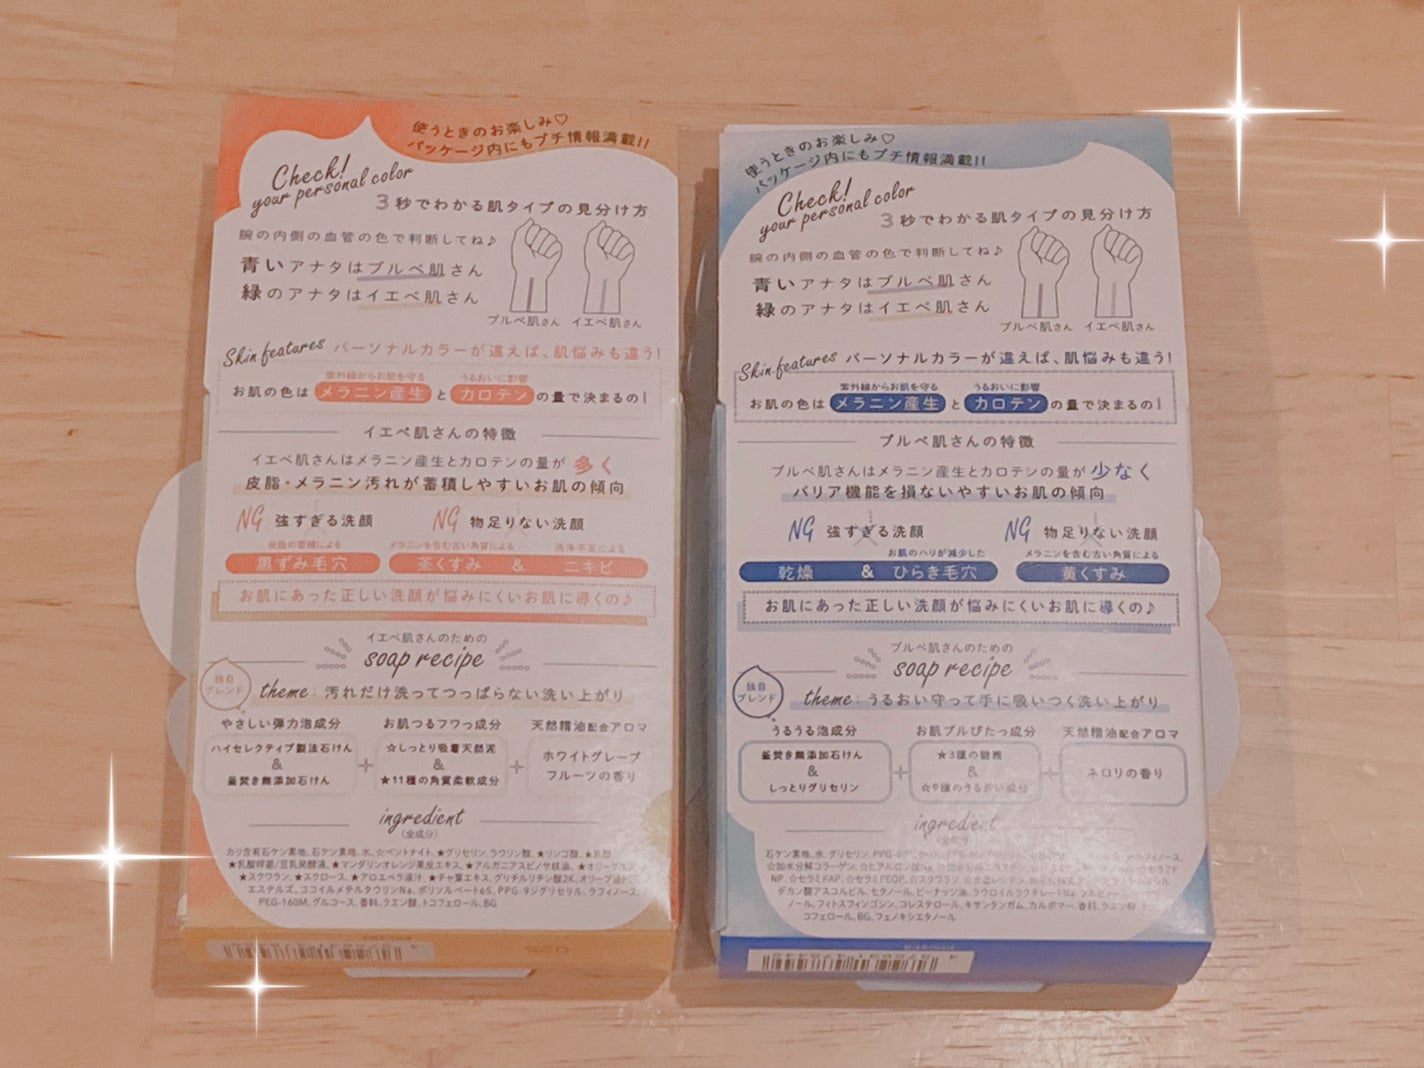 使うときのお楽しみ♡
パッケージ内にもプチ情報満載!!
Check!
your personal color
3秒でわかる肌タイプの見分け方
腕の内側の血管の色で判断してね♪
青いアナタはブルベ肌さん
緑のアナタはイエベ肌さん
ブルベ肌さん イエベ肌さん
Skin features パーソナルカラーが違えば、肌悩みも違う!
紫外線からお肌を守る うるおいに影響
お肌の色は メラニン産生 と カロテン の量で決まるの!
イエベ肌さんの特徴
イエベ肌さんはメラニン産生とカロテンの量が 多く
皮脂・メラニン汚れが蓄積しやすいお肌の傾向
NG 強すぎる洗顔 NG 物足りない洗顔
皮脂の蓄積による メラニンを含む古い角質による 洗浄不足による
黒ずみ毛穴 茶くすみ & ニキビ
お肌にあった正しい洗顔が悩みにくいお肌に導くの♪
イエベ肌さんのための
soap recipe
独自
ブレンド
theme: 汚れだけ洗ってつっぱらない洗い上がり
やさしい弾力泡成分 お肌つるフワっ成分 天然精油配合アロマ
ハイセレクティブ製法石けん
&
釜焚き無添加石けん
+
☆しっとり吸着天然泥
&
★11種の角質柔軟成分
+
ホワイトグレープ
フルーツの香り
ingredient
(全成分)
カリ含有石ケン素地、石ケン素地、水、☆ベントナイト、★グリセリン、ラウリン酸、★リンゴ酸、★乳酸
★乳酸桿菌/豆乳発酵液、★マンダリンオレンジ果皮エキス、★アルガニアスピノサ核油、
★スクワラン、★スクロース、★アロエベラ液汁、★チャ葉エキス、グリチルリチン酸2K、オリーブ油
エステルズ、ココイルメチルタウリンNa、ポリソルベート65、PPG-9ジグリセリル、ラフィノース、
PEG-160M、グルコース、香料、クエン酸、トコフェロール、BG
使うときのお楽しみ♡
パッケージ内にもプチ情報満載!!
Check!
your personal color
3秒でわかる肌タイプの見分け方
腕の内側の血管の色で判断してね♪
青いアナタはブルベ肌さん
緑のアナタはイエベ肌さん
ブルベ肌さん イエベ肌さん
Skin features パーソナルカラーが違えば、肌悩みも違う!
紫外線からお肌を守る うるおいに影響
お肌の色は メラニン産生 と カロテン の量で決まるの!
ブルベ肌さんの特徴
ブルベ肌さんはメラニン産生とカロテンの量が 少なく
バリア機能を損ないやすいお肌の傾向
NG 強すぎる洗顔 NG 物足りない洗顔
お肌のハリが減少した メラニンを含む古い角質による
乾燥 & ひらき毛穴 黄くすみ
お肌にあった正しい洗顔が悩みにくいお肌に導くの♪
ブルベ肌さんのための
soap recipe
独自
ブレンド
theme: うるおい守って手に吸いつく洗い上がり
うるうる泡成分 お肌プルぴたっ成分 天然精油配合アロマ
釜焚き無添加石けん
&
しっとりグリセリン
+
★3種の糖類
&
☆9種のうるおい成分
+
ネロリの香り
ingredient
(全成分)
石ケン素地、水、グリセリン、
☆加水分解コラーゲン、
NP、☆セラミドAP、☆セラミドEOP、
デカン酸アスコルビル、セタノール、ピーナッツ油、
ノール、フィトスフィンゴシン、コレステロール、キサンタンガム、カルボマー、香料、クエン酸、
コフェロール、BG、フェノキシエタノール